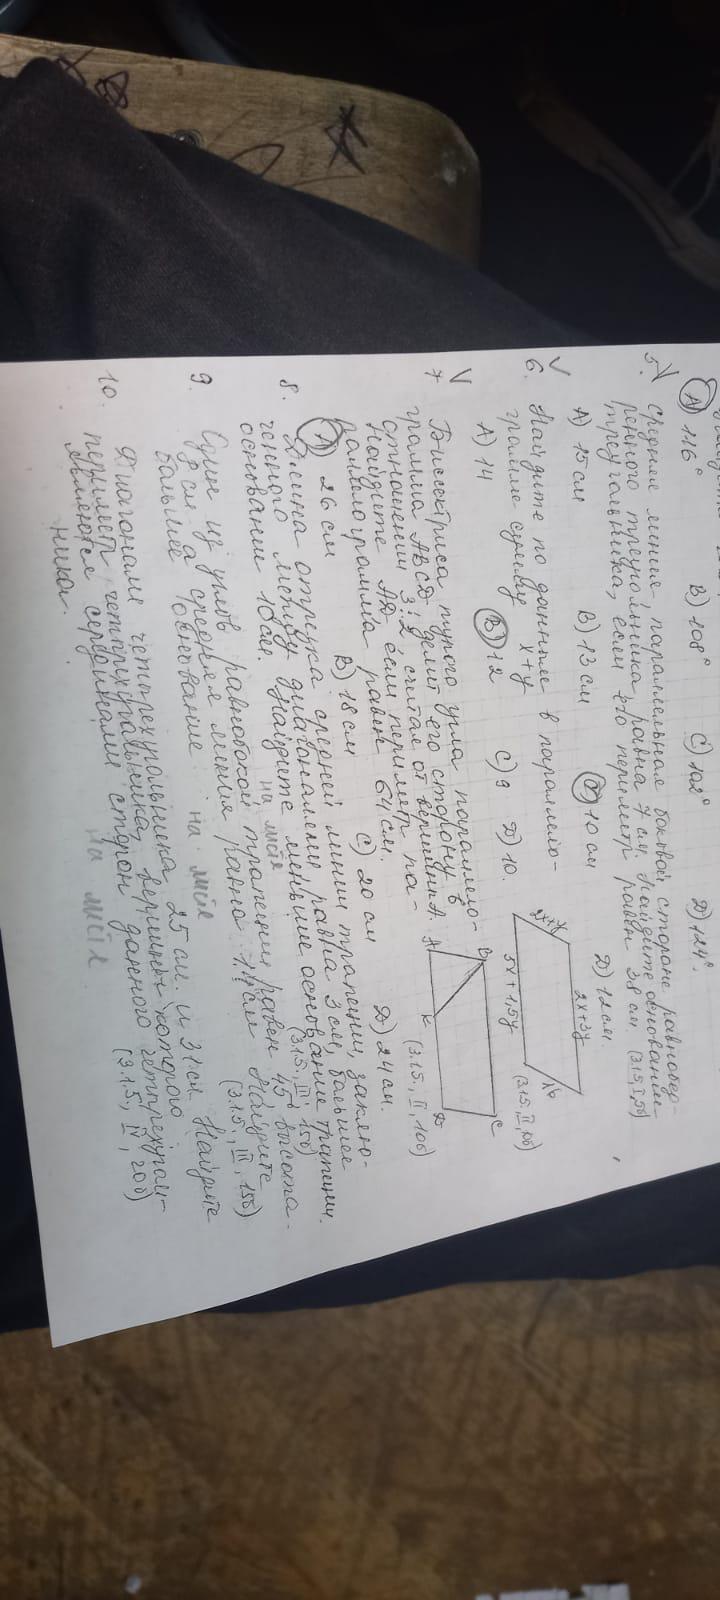 A) 116° B) 108° C) 102° D) 124°.
5. Средняя линия, параллельная боковой стороне равнобед-
ренного треугольника равна 7 см. Найдите основание
треугольника, если его периметр равен 38 см. (3.1.5, I, 5б)
A) 15 см B) 13 см C) 10 см D) 12 см.
6. Найдите по данным в параллело-
грамме сумму x+y (3.1.5, II, б)
A) 14 B) 12 C) 9 D) 10.
2x+3y
5x+1,5y
16
7 Биссектриса тупого угла параллело-
грамма ABCD делит его сторону в
отношении 3:2 считая от вершины А.
Найдите AD если периметр па-
раллелограмма равен 64 см. (3.1.5, II, 10б)
A) 26 см B) 18 см C) 20 см D) 24 см.
B C
A K D
8. Длина отрезка средней линии трапеции, заклю-
ченного между диагоналями равна 3 см, большее
основание 10 см. Найдите меньшее основание трапеции.
на листе (3.1.5, II, 15б)
9. Один из углов равнобокой трапеции равен 45°, высота -
см а средняя линия равна см Найдите
большее основание на листе (3.1.5, III, 15б)
10. Диагонали четырехугольника 25 см. и 31 см. Найдите
периметр четырехугольника, вершины которого
являются серединами сторон данного четырехуголь-
ника. на листе (3.1.5, IV, 20б)